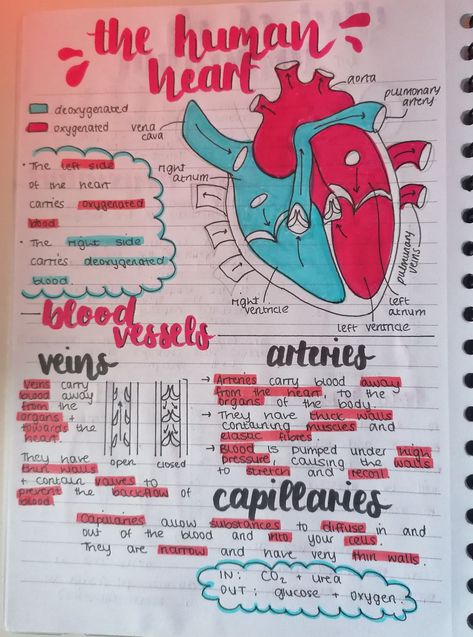 the human
heart
deoxygenated
oxygenated
vena
cava
aorta
pulmonary
artery
right
atrium
• The left side
of the heart
carries oxygenated
blood
• The right side
carries deoxygenated
blood.
right
ventricle
left ventricle
left
atrium
pulmonary
veins
blood
vessels
veins
Veins carry
blood away
from the
organs +
towards the
heart.
open
closed
They have
thin walls
+ contain valves to
prevent the backflow of
blood
arteries
→ Arteries carry blood away
from the heart, to the
organs of the body.
→ They have thick walls
containing muscles and
elastic fibres.
→ Blood is pumped under high
pressure, causing the walls
to stretch and recoil.
capillaries
Capillaries allow substances to diffuse in and
out of the blood and into your cells.
They are narrow and have very thin walls.
IN: CO2 + urea
OUT: glucose + oxygen.